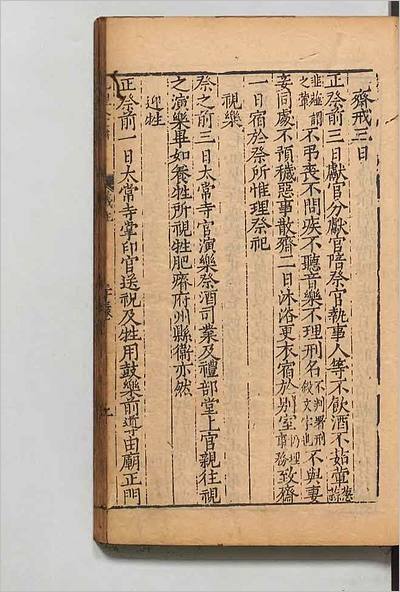 齋戒三日
正祭前三日獻官分獻官陪祭官執事人等不飲酒不茹葷葱韭蒜
韭薤謂之葷不弔喪不問疾不聽音樂不理刑名不判署刑殺文字也不與妻
妾同處不預穢惡事散齋二日沐浴更衣宿於別室仍理事務致齋
一日宿於祭所惟理祭祀
視樂
祭之前三日太常寺官演樂祭酒司業及禮部堂上官親往視
之演樂畢如養牲所視牲肥瘠府州縣衛亦然
迎牲
正祭前一日太常寺掌印官送祝及牲用鼓樂前導由廟正門